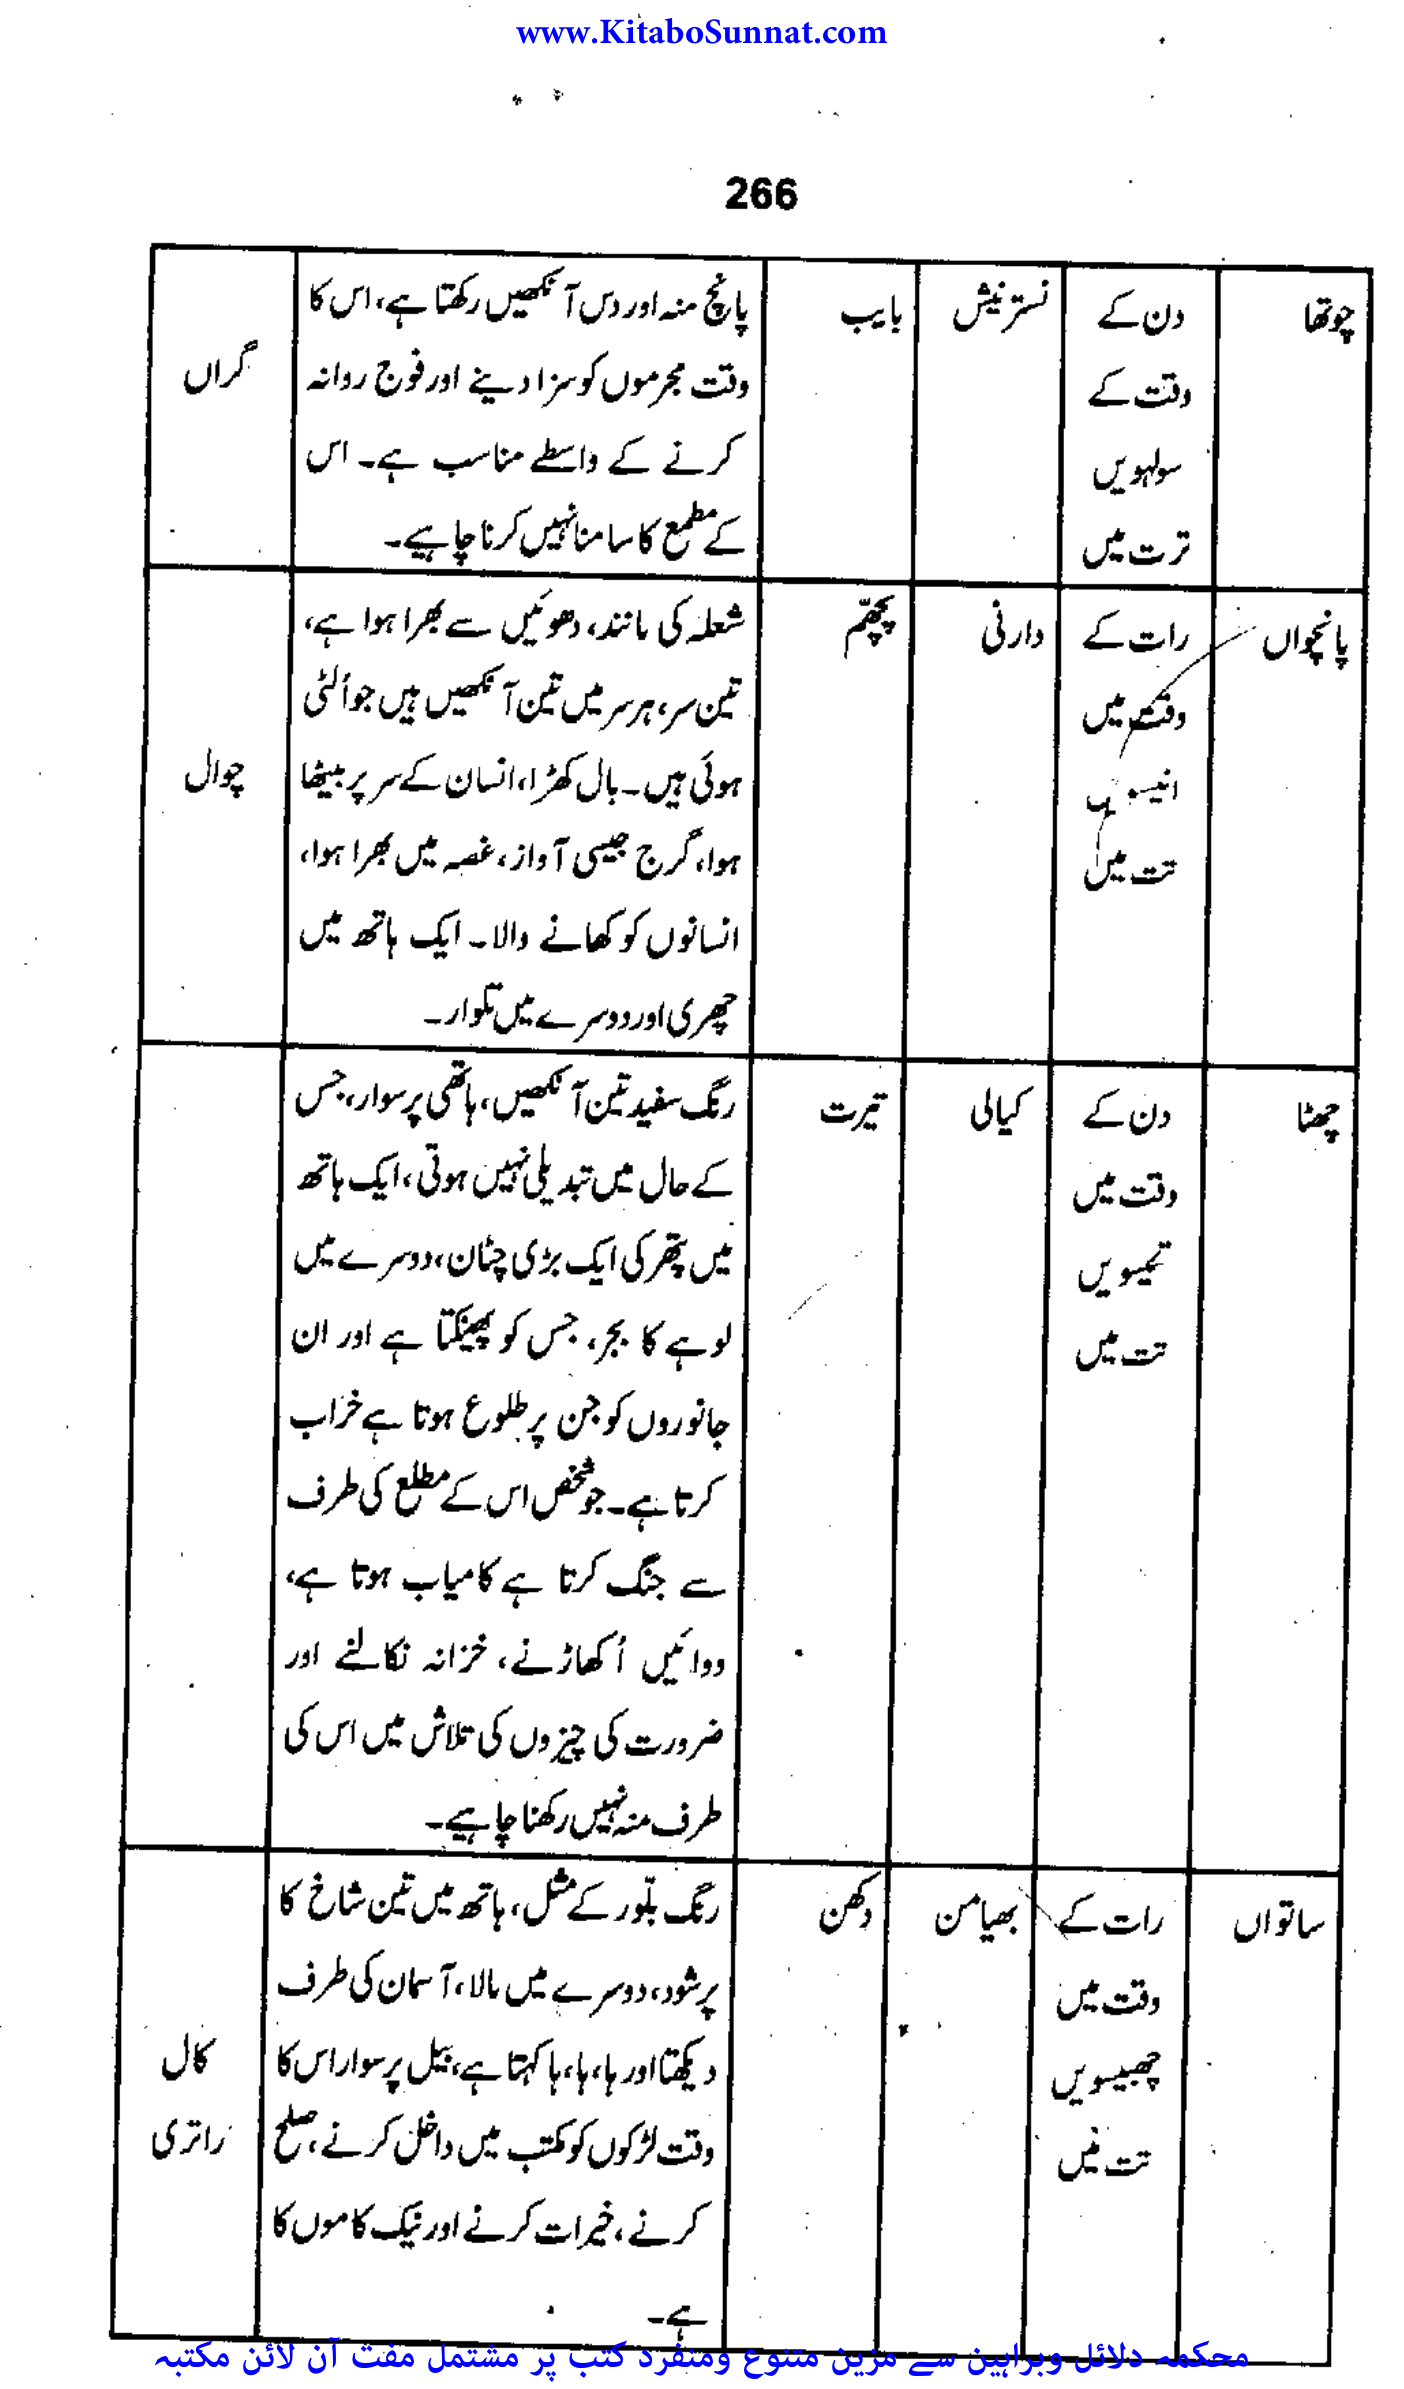 www.KitaboSunnat.com
266
چوتھا
دن کے
وقت کے
سولہویں
ترت میں
نسترنیش
بایب
پانچ منہ اور دس آنکھیں رکھتا ہے، اس کا
وقت مجرموں کو سزا دینے اور فوج روانہ
کرنے کے واسطے مناسب ہے۔ اس
کے مطمع کا سامنا نہیں کرنا چاہیے۔
گراں
پانچواں
رات کے
وقت میں
انیسویں
تت میں
دارنی
پچھّم
شعلہ کی مانند، دھوئیں سے بھرا ہوا ہے،
تین سر، ہر سر میں تین آنکھیں ہیں جو اُلٹی
ہوئی ہیں۔ بال کھڑا، انسان کے سر پر بیٹھا
ہوا، گرج جیسی آواز، غصہ میں بھرا ہوا،
انسانوں کو کھانے والا۔ ایک ہاتھ میں
چھری اور دوسرے میں تلوار۔
چوال
چھٹا
دن کے
وقت میں
تیسویں
تت میں
کیالی
تیرت
رنگ سفید تین آنکھیں، ہاتھی پر سوار، جس
کے حال میں تبدیلی نہیں ہوتی، ایک ہاتھ
میں پتھر کی ایک بڑی چٹان، دوسرے میں
لوہے کا بجر، جس کو پھینکتا ہے اور ان
جانوروں کو جن پر طلوع ہوتا ہے خراب
کرتا ہے۔ جو شخص اس کے مطلع کی طرف
سے جنگ کرتا ہے کامیاب ہوتا ہے،
دوائیں اُکھاڑنے، خزانہ نکالنے اور
ضرورت کی چیزوں کی تلاش میں اس کی
طرف منہ نہیں رکھنا چاہیے۔
ساتواں
رات کے
وقت میں
چھبیسویں
تت میں
بھیامن
دکھن
رنگ بلّور کے مثل، ہاتھ میں تین شاخ کا
پرشود، دوسرے میں مالا، آسمان کی طرف
دیکھتا اور ہا، ہا، ہا کہتا ہے، بیل پر سوار اس کا
وقت لڑکوں کو مکتب میں داخل کرنے، صلح
کرنے، خیرات کرنے اور نیک کاموں کا
ہے۔
کال
راتری
محکمہ دلائل وبراہین سے مزین متنوع ومنفرد کتب پر مشتمل مفت آن لائن مکتبہ